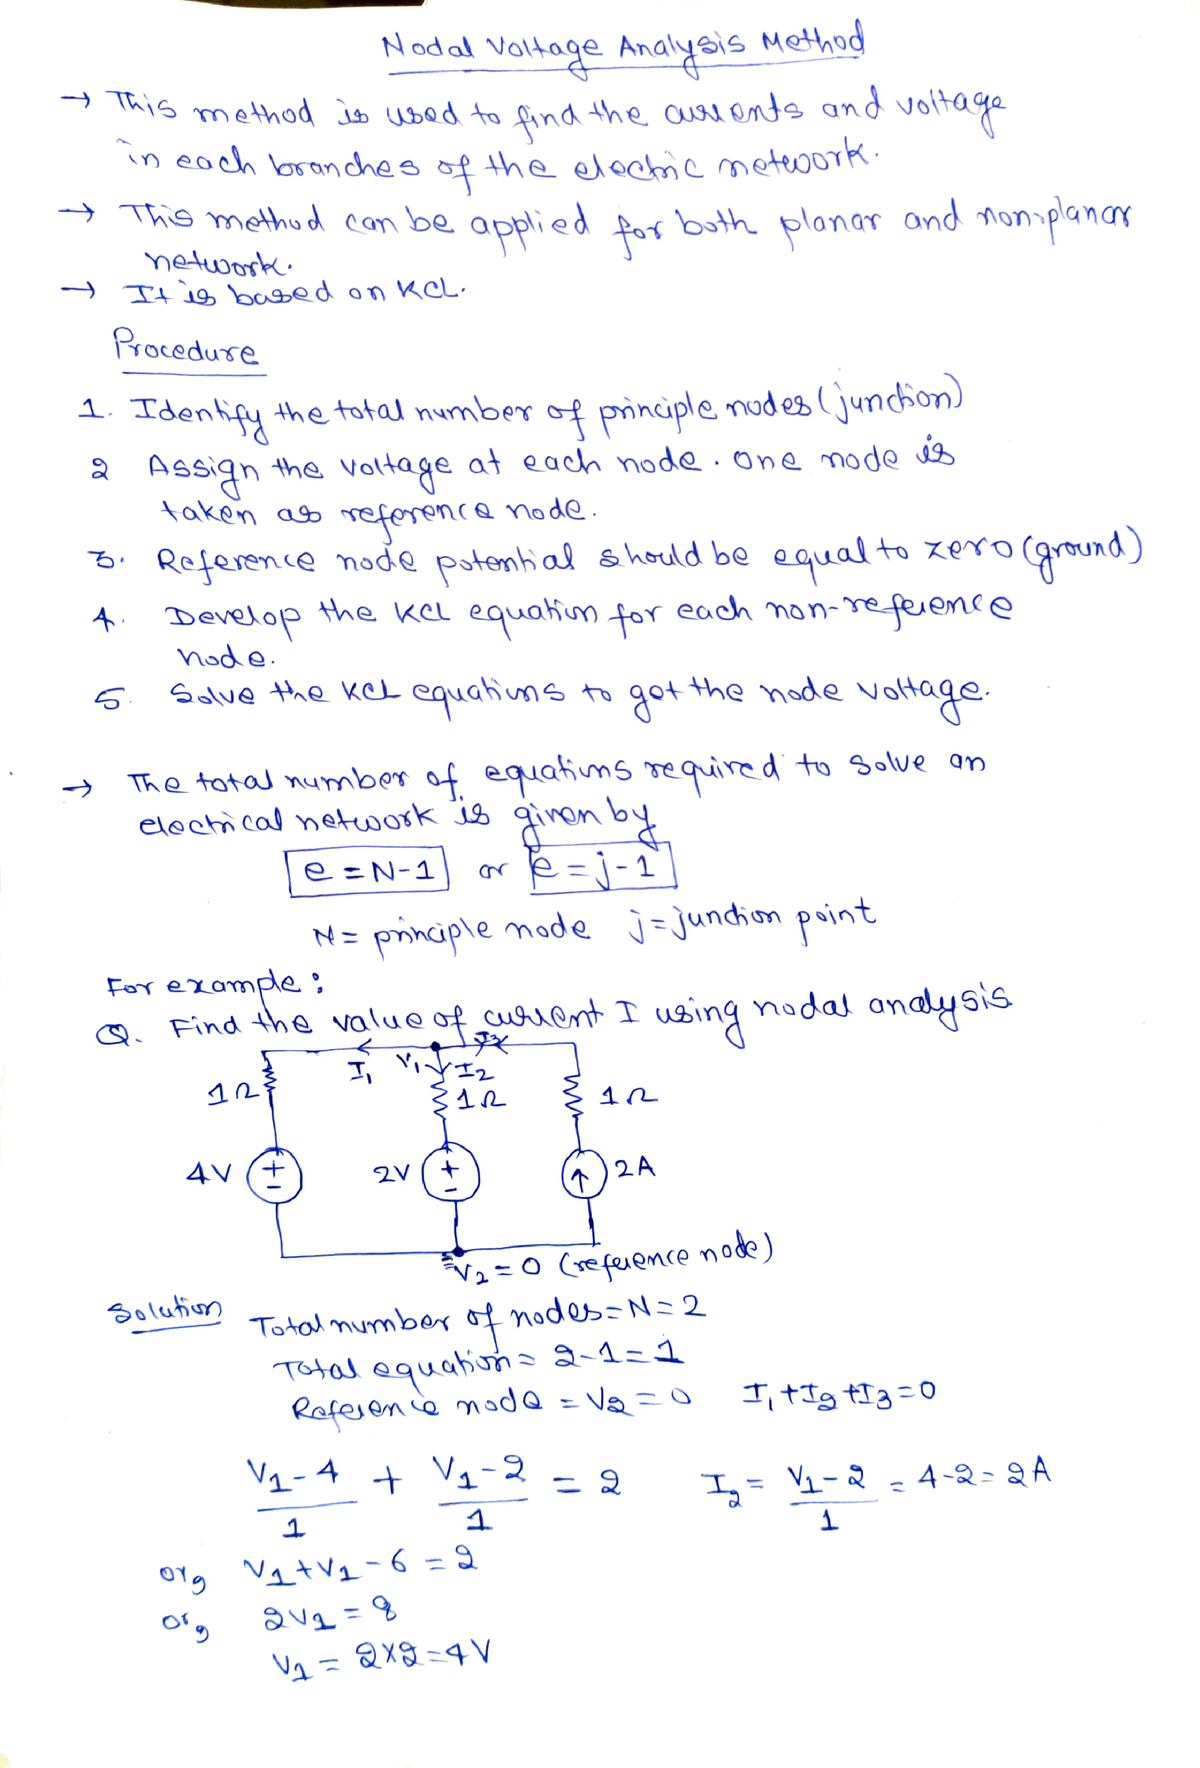 Nodal Voltage Analysis Method
→ This method is used to find the currents and voltage
in each branches of the electric network.
→ This method can be applied for both planar and non-planar
network.
→ It is based on KCL.
Procedure
1. Identify the total number of principle nodes (junction)
2 Assign the voltage at each node. One node is
taken as reference node.
3. Reference node potential should be equal to zero (ground)
4. Develop the KCL equation for each non-reference
node.
5. Solve the KCL equations to get the node voltage.
→ The total number of equations required to solve an
electrical network is given by
e = N-1 or e = j-1
N = principle node j = junction point
For example :
Q. Find the value of current I using nodal analysis
I₁ V₁ I₂
1Ω 1Ω 1Ω
4V + 2V + 2A
V₂ = 0 (reference node)
Solution
Total number of nodes = N = 2
Total equation = 2-1 = 1
Reference node = V2 = 0 I₁ + I2 + I3 = 0
(V1 - 4)/1 + (V1 - 2)/1 = 2 I2 = (V1 - 2)/1 = 4-2 = 2A
or, V1 + V1 - 6 = 2
or, 2V1 = 8
V1 = 2x2 = 4V